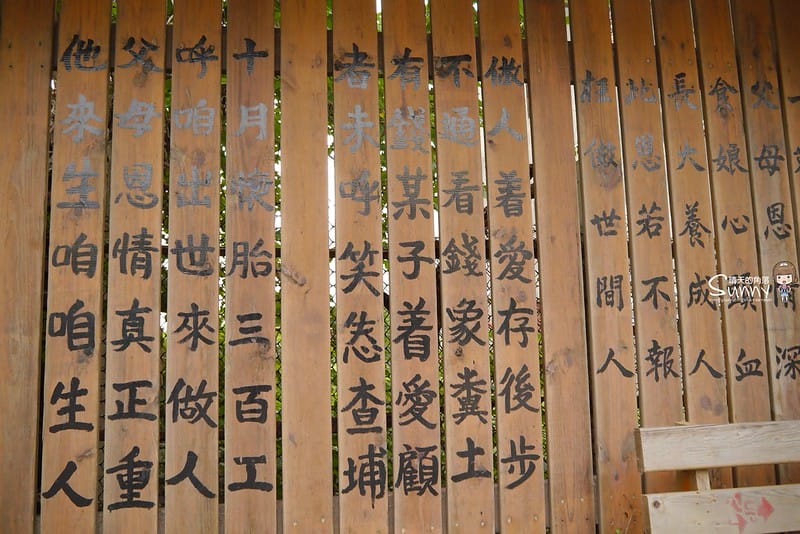 父母恩情深
食娘心頭血
長大養成人
此恩若不報
枉做世間人
做人着愛存後步
不通看錢象糞土
有錢某子着愛顧
者未呼笑查埔
十月懷胎三百工
呼咱出世來做人
父母恩情真正重
他來生咱咱生人
晴天的角落
Sunny